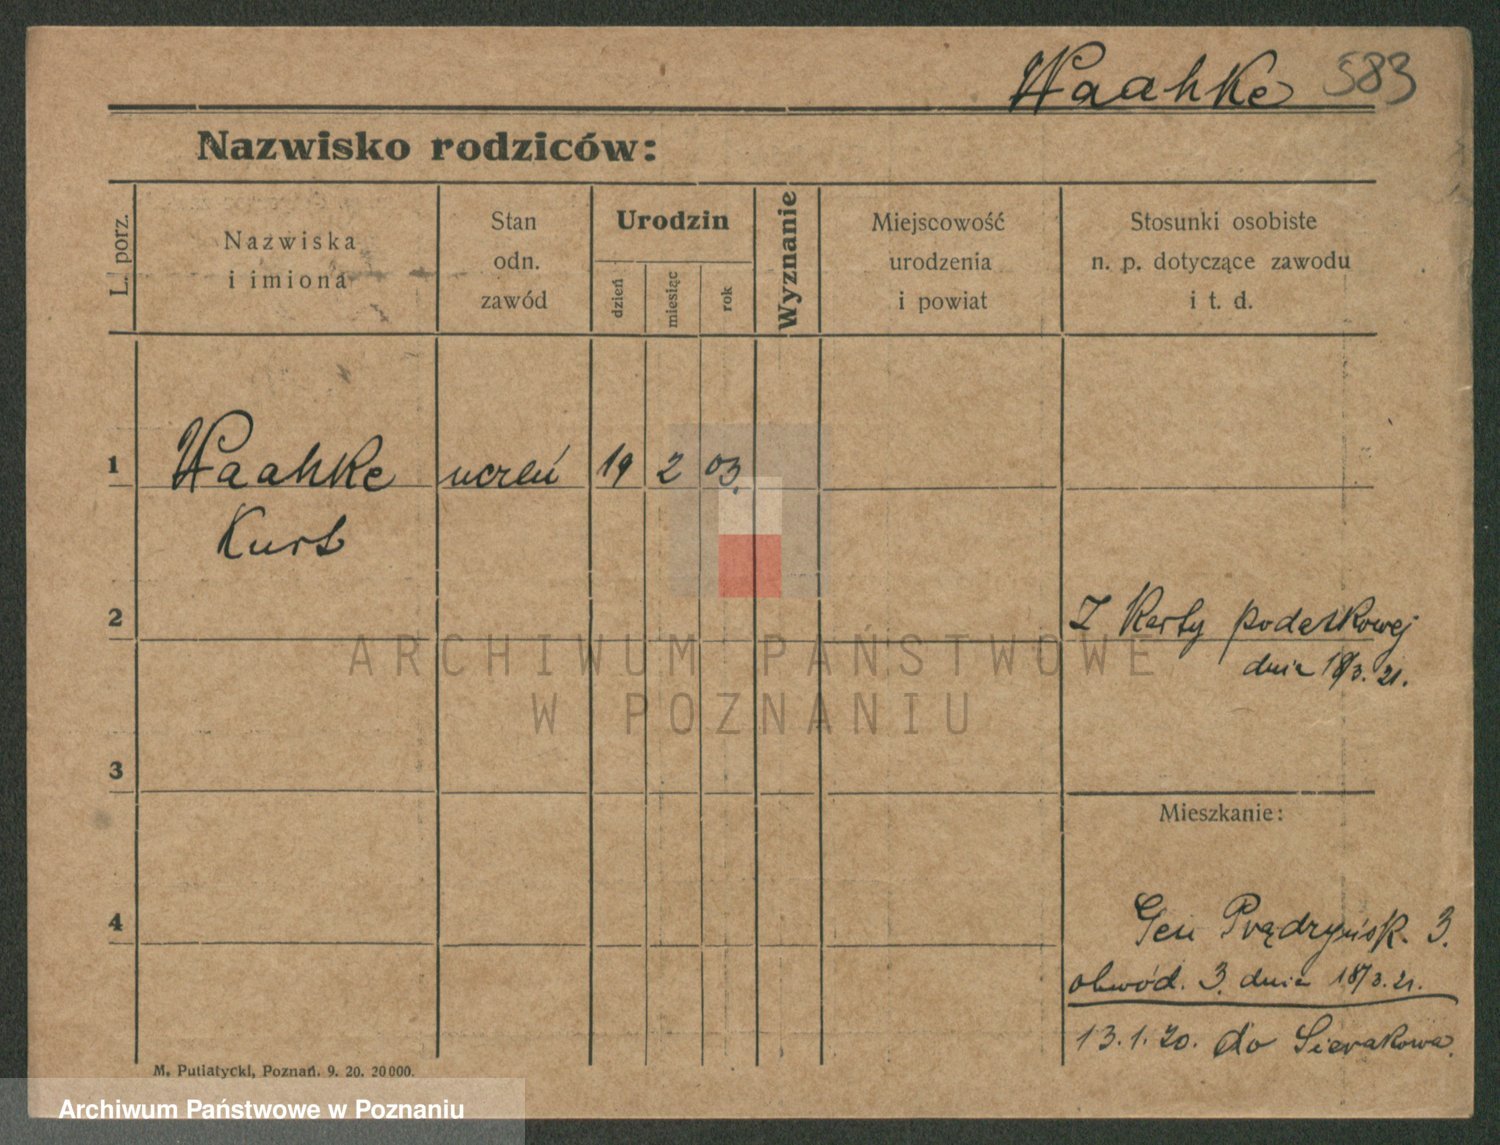 Waahke 583
Nazwisko rodziców:
L. porz.
Nazwiska
i imiona
Stan
odn.
zawód
Urodzin
dzień
miesiąc
rok
Wyznanie
Miejscowość
urodzenia
i powiat
Stosunki osobiste
n. p. dotyczące zawodu
i t. d.
1 Waahke uczeń 19 2 03.
Kurt
2
Z Karty podatkowej
dnia 18/3. 21.
ARCHIWUM PAŃSTWOWE
W POZNANIU
3
Mieszkanie:
4
Gen Prądzyńsk. 3.
obwód. 3. dnia 18/3. 21.
13. 1. 20. do Sierakowa.
M. Putiatycki, Poznań. 9. 20. 20000.
Archiwum Państwowe w Poznaniu